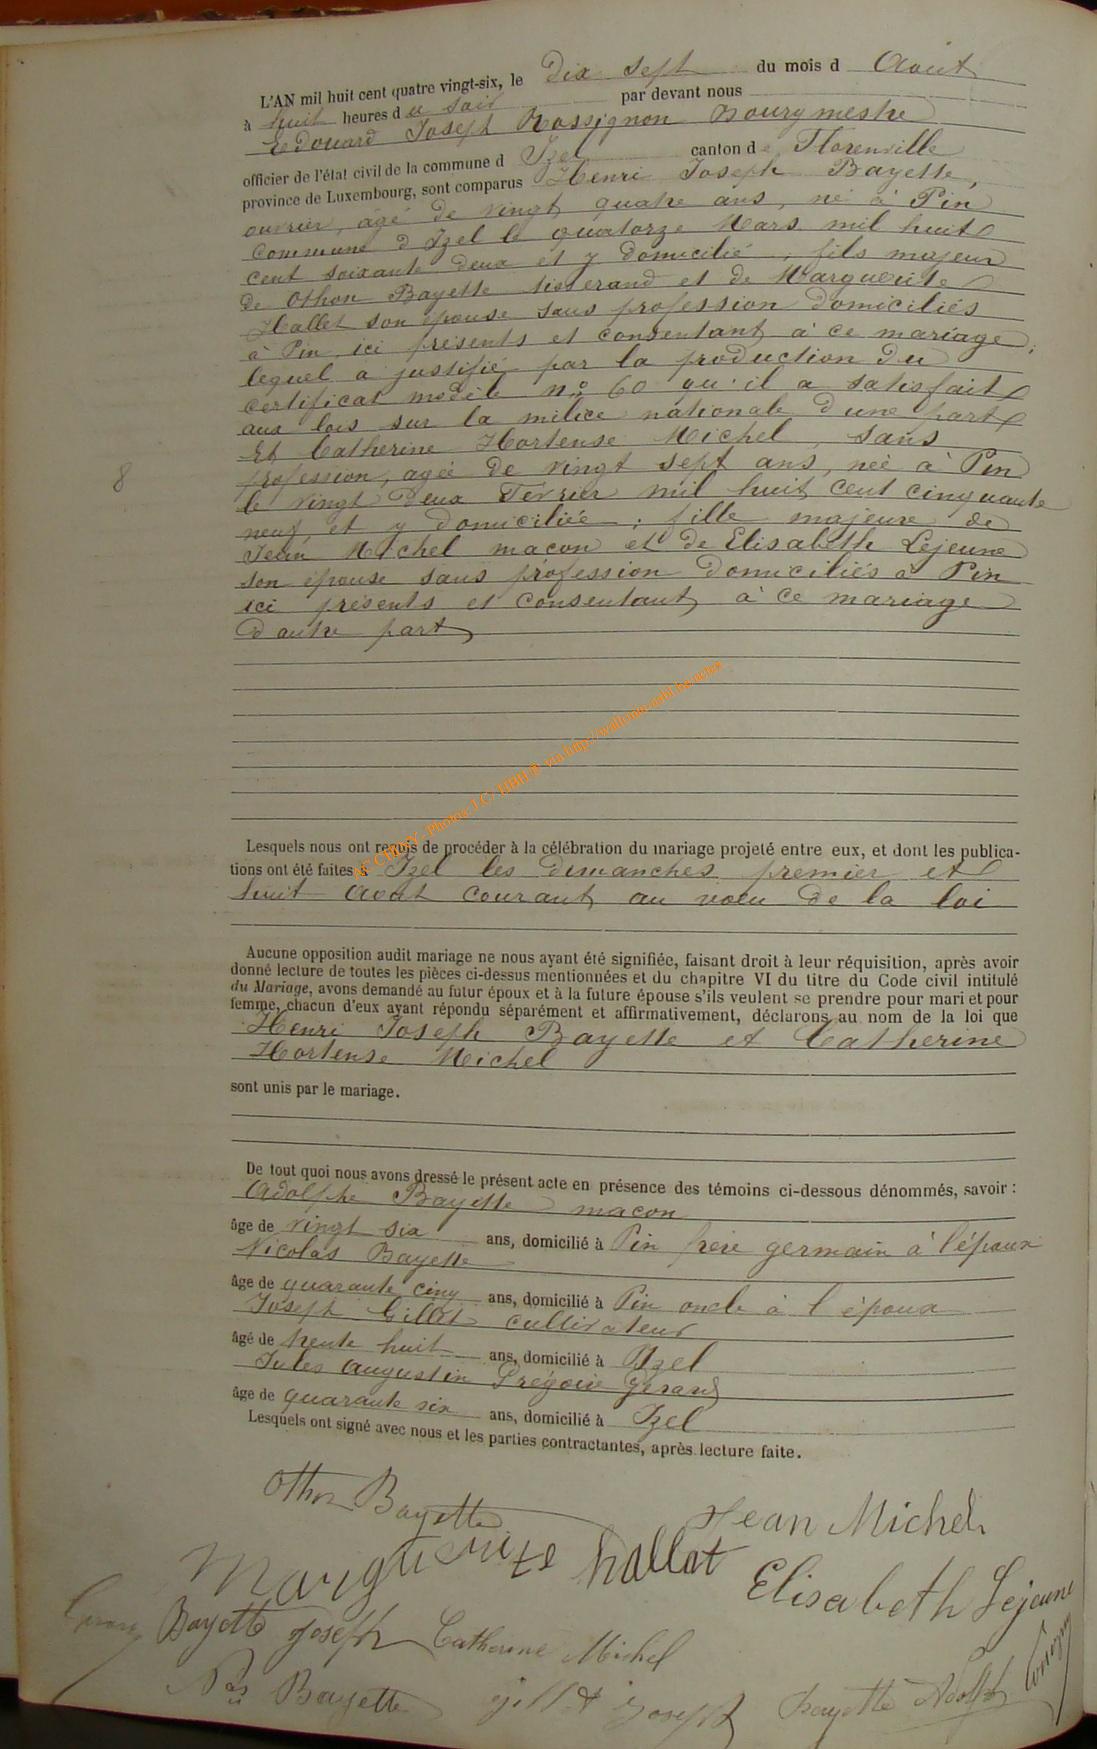 L'AN mil huit cent quatre vingt-six, le Dix sept du mois d Aout
à huit heures d u soir par devant nous
Edouard Joseph Rossignon Bourgmestre
officier de l'état civil de la commune d Izel canton de Florenville
province de Luxembourg, sont comparus Henri Joseph Bayette,
ouvrier, agé de vingt quatre ans, né à Pin
commune d Izel le quatorze Mars mil huit
cent soixante deux et y domicilié, fils majeur
de Othon Bayette tisserand et de Marguerite
Hallet son épouse sans profession domiciliés
à Pin ici présents et consentant à ce mariage,
lequel a justifié par la production du
certificat modèle no 60 qu'il a satisfait
aux lois sur la milice nationale d'une part
Et Catherine Hortense Michel, sans
profession, agée de vingt sept ans, née à Pin
le vingt deux Février mil huit cent cinquante
neuf et y domiciliée, fille majeure de
Jean Michel macon et de Elisabeth Lejeune
son épouse sans profession domiciliés à Pin
ici présents et consentant à ce mariage
d'autre part
8
AC CHINY - Photos J.C/ HBH.P. via http://wallonia-asbl.be/actes
Lesquels nous ont requis de procéder à la célébration du mariage projeté entre eux, et dont les publica-
tions ont été faites à Izel les dimanches premier et
huit Aout courant au voeu de la loi
Aucune opposition audit mariage ne nous ayant été signifiée, faisant droit à leur réquisition, après avoir
donné lecture de toutes les pièces ci-dessus mentionnées et du chapitre VI du titre du Code civil intitulé
du Mariage, avons demandé au futur époux et à la future épouse s'ils veulent se prendre pour mari et pour
femme, chacun d'eux ayant répondu séparément et affirmativement, déclarons au nom de la loi que
Henri Joseph Bayette et Catherine
Hortense Michel
sont unis par le mariage.
De tout quoi nous avons dressé le présent acte en présence des témoins ci-dessous dénommés, savoir :
Adolphe Bayette macon
âge de vingt six ans, domicilié à Pin frère germain à l'époux
Nicolas Bayette
âge de quarante cinq ans, domicilié à Pin oncle à l époux
Joseph Gillet cultivateur
âgé de trente huit ans, domicilié à Izel
Jules Augustin Grégoire Gerard
âge de quarante six ans, domicilié à Izel
Lesquels ont signé avec nous et les parties contractantes, après lecture faite.
Othon Bayette
Jean Michel
Marguerite hallet
Elisabeth Lejeune
Bayette Joseph Catherine Michel
Bayette gillet joseph Bayette Adolph